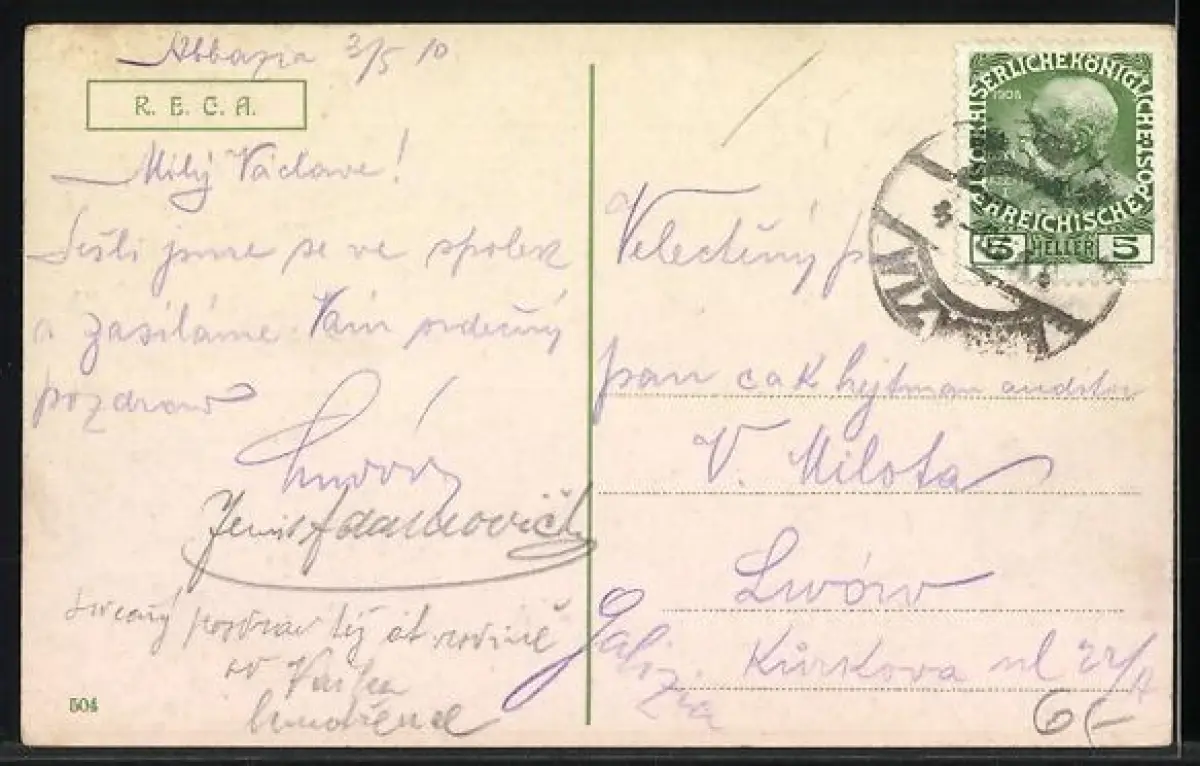 Abbazia 3/5 10
R. E. C. A.
Milý Václave!
Sešli jsme se ve spolek
a zasíláme Vám srdečný
pozdrav
pozdrav též ct. rodině
504
KAISERLICHE KÖNIGLICHE ÖSTERREICHISCHE POST
1908
5 HELLER 5
Velectěný
pan c a k hejtman auditor
V. Milota
Lwów
Kurkova ul 22/A
Galizia
65